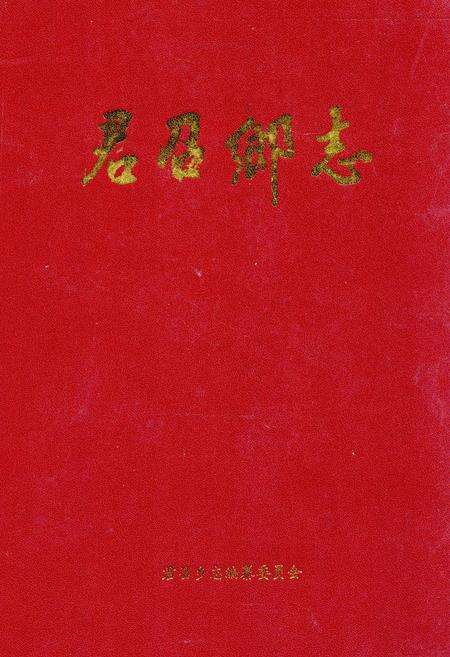 君召鄉志
君召乡志编纂委员会